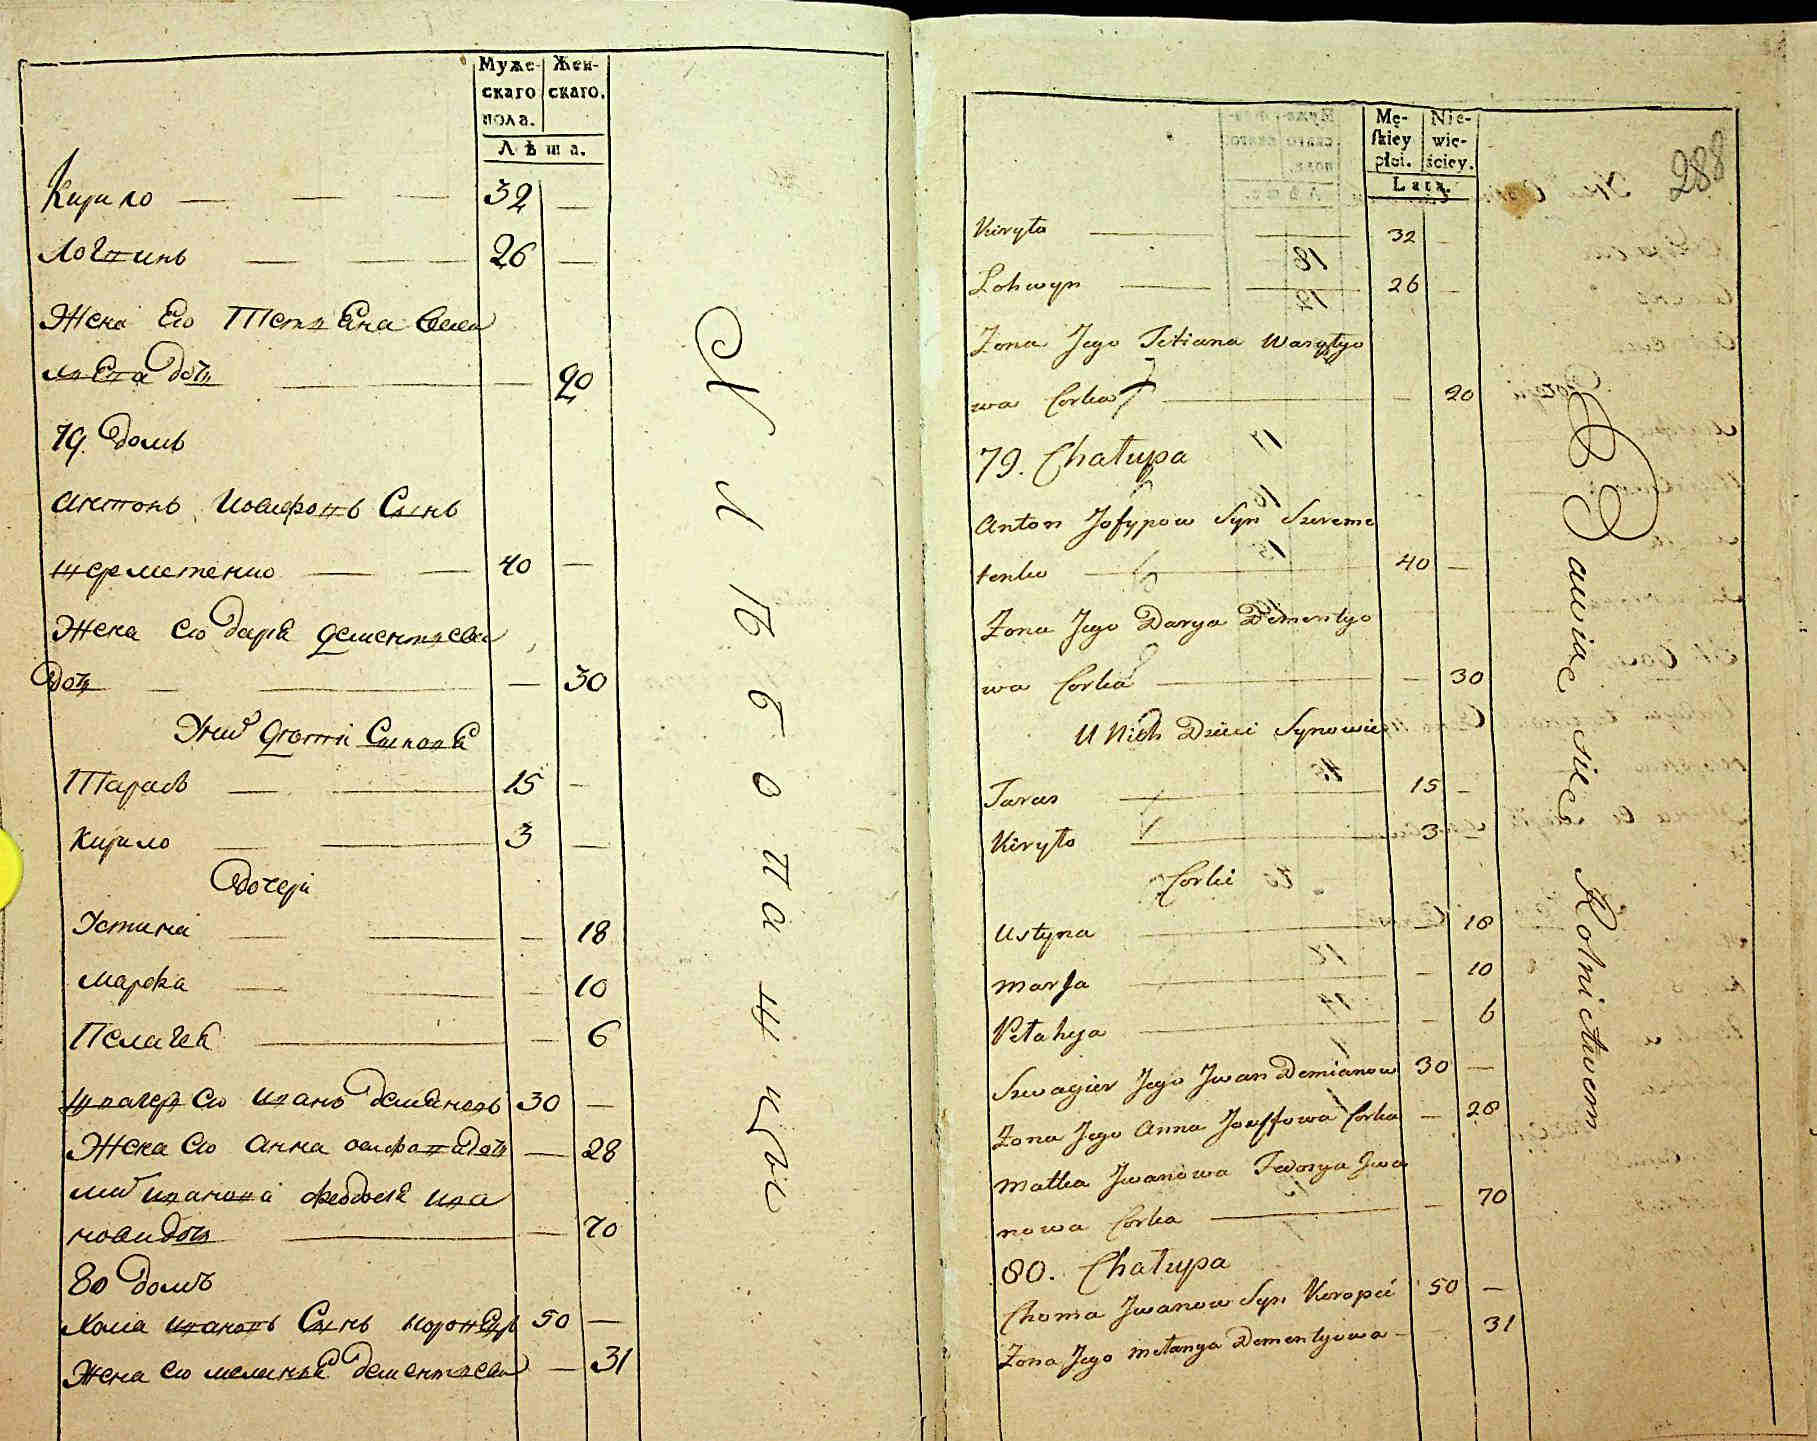 Муже-
скаго
пола.
Жен-
скаго.
Лѣта.
Кирило — — — 32 —
Логвинъ — — — 26 —
Жена Его Тетяна Васи
лиева дочь — — 20
79. Домъ
Антонъ Иосифовъ Сынъ
Шереметенко — — 40 —
Жена его Дарія Дементиева
дочь — — — 30
У нихъ Дети Синовя
Тарасъ — — 15 —
Кирило — — 3 —
Дочери
Устина — — — 18
Марфа — — — 10
Пелагея — — 6
Швагеръ его Иванъ Демяновъ 30 —
Жена его Анна осифова дочь — 28
мать Иванова Феодосія Ива
нова дочь — — 70
80 Домъ
Хома Ивановъ Сынъ 50 —
Жена его меланья Дементиева — 31
Хлѣбопашцы
288
Mę-
skiey
płci.
Nie-
wie-
ściey.
Lata.
Kiryło — — 32 —
Lohwyn — — 26 —
Zona Jego Tetiana Wasylyo
wa Corka — — 20
79. Chałupa
Anton Josypow Syn Szereme
tenko — 40 —
Zona Jego Darya Dementyo
wa Corka — — 30
U Nich Dzieci Synowie
Taras — 15 —
Kiryło — 3 —
Corki
Ustyna — — 18
Marfa — — 10
Pełahya — — 6
Szwagier Jego Jwan Demianow 30 —
Zona Jego Anna Joseffowa Corka — 28
Matka Jwanowa Fedosya Jwa
nowa Corka — — 70
80. Chałupa
Choma Jwanow Syn Koropié 50 —
Zona Jego Mełanya Dementyiowa — — 31
Bawiąc się Rolnictwem